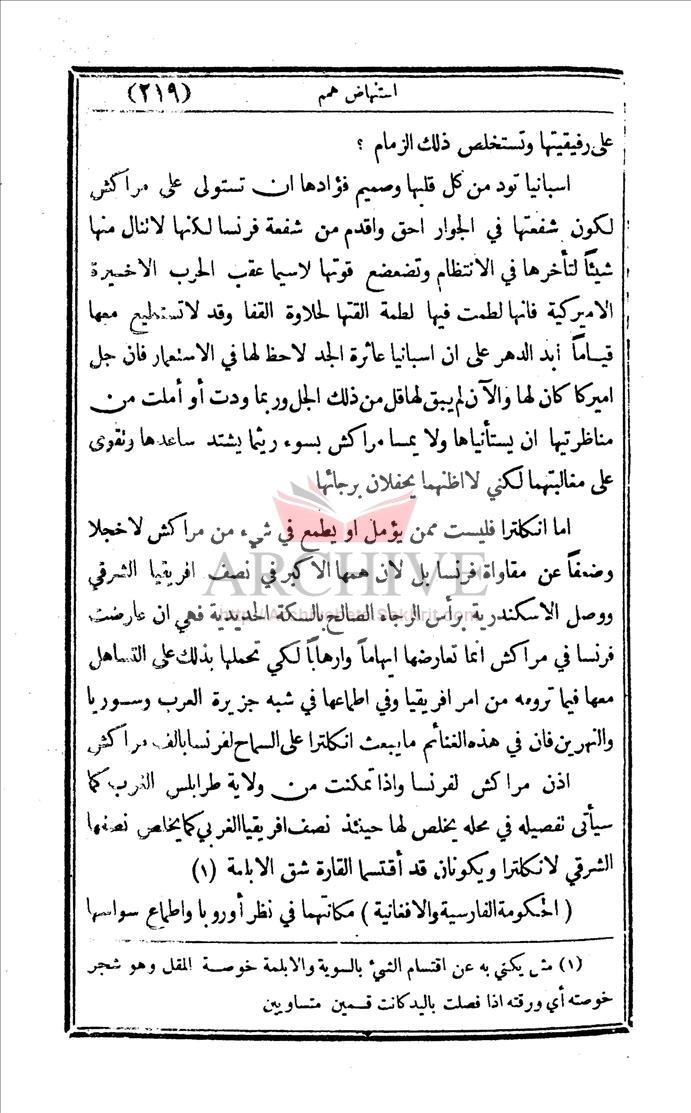 استنهاض همم
(٢١٩)
على رفيقيتها وتستخلص ذلك الزمام ؟
اسبانيا تود من كل قلبها وصميم فؤادها ان تستولى على مراكش
لكون شفعتها في الجوار احق واقدم من شفعة فرنسا لكنها لاتنال منها
شيئاً لتأخرها في الانتظام وتضعضع قوتها لاسيما عقب الحرب الاخيرة
الاميركية فانها لطمت فيها لطمة القتها لحلاوة القفا وقد لاتستطيع معها
قياماً أبد الدهر على ان اسبانيا عاثرة الجد لاحظ لها في الاستعمار فان جل
اميركا كان لها والآن لم يبق لها قل من ذلك الجل وربما ودت أو أملت من
مناظرتيها ان يستأنياها ولا يمسا مراكش بسوء ريثما يشتد ساعدها وتقوى
على مغالبتهما لكني لااظنهما يحفلان برجائها
اما انكلترا فليست ممن يؤمل او يطمع في شيء من مراكش لاخجلا
وضعفاً عن مقاواة فرنسا بل لان همها الاكبر في نصف افريقيا الشرقي
ووصل الاسكندرية برأس الرجاء الصالح بالسكة الحديدية فهي ان عارضت
فرنسا في مراكش انما تعارضها ايهاماً وارهاباً لكي تحملها بذلك على التساهل
معها فيما ترومه من امر افريقيا وفي اطماعها في شبه جزيرة العرب وسوريا
والنهرين فان في هذه الغنائم مايبعث انكلترا على السماح لفرنسا بالف مراكش
اذن مراكش لفرنسا واذا تمكنت من ولاية طرابلس الغرب كما
سيأتى تفصيله في محله يخلص لها حينئذ نصف افريقيا الغربي كما يخلص نصفها
الشرقي لانكلترا ويكونان قد أقتسما القارة شق الابلمة (١)
( الحكومة الفارسية والافغانية ) مكانتهما في نظر أوروبا واطماع سواسها
(١) مثل يكني به عن اقتسام الشيء بالسوية والابلمة خوصة المقل وهو شجر
خوصته أي ورقته اذا فصلت باليد كانت قسمين متساويين
ARCHIVE